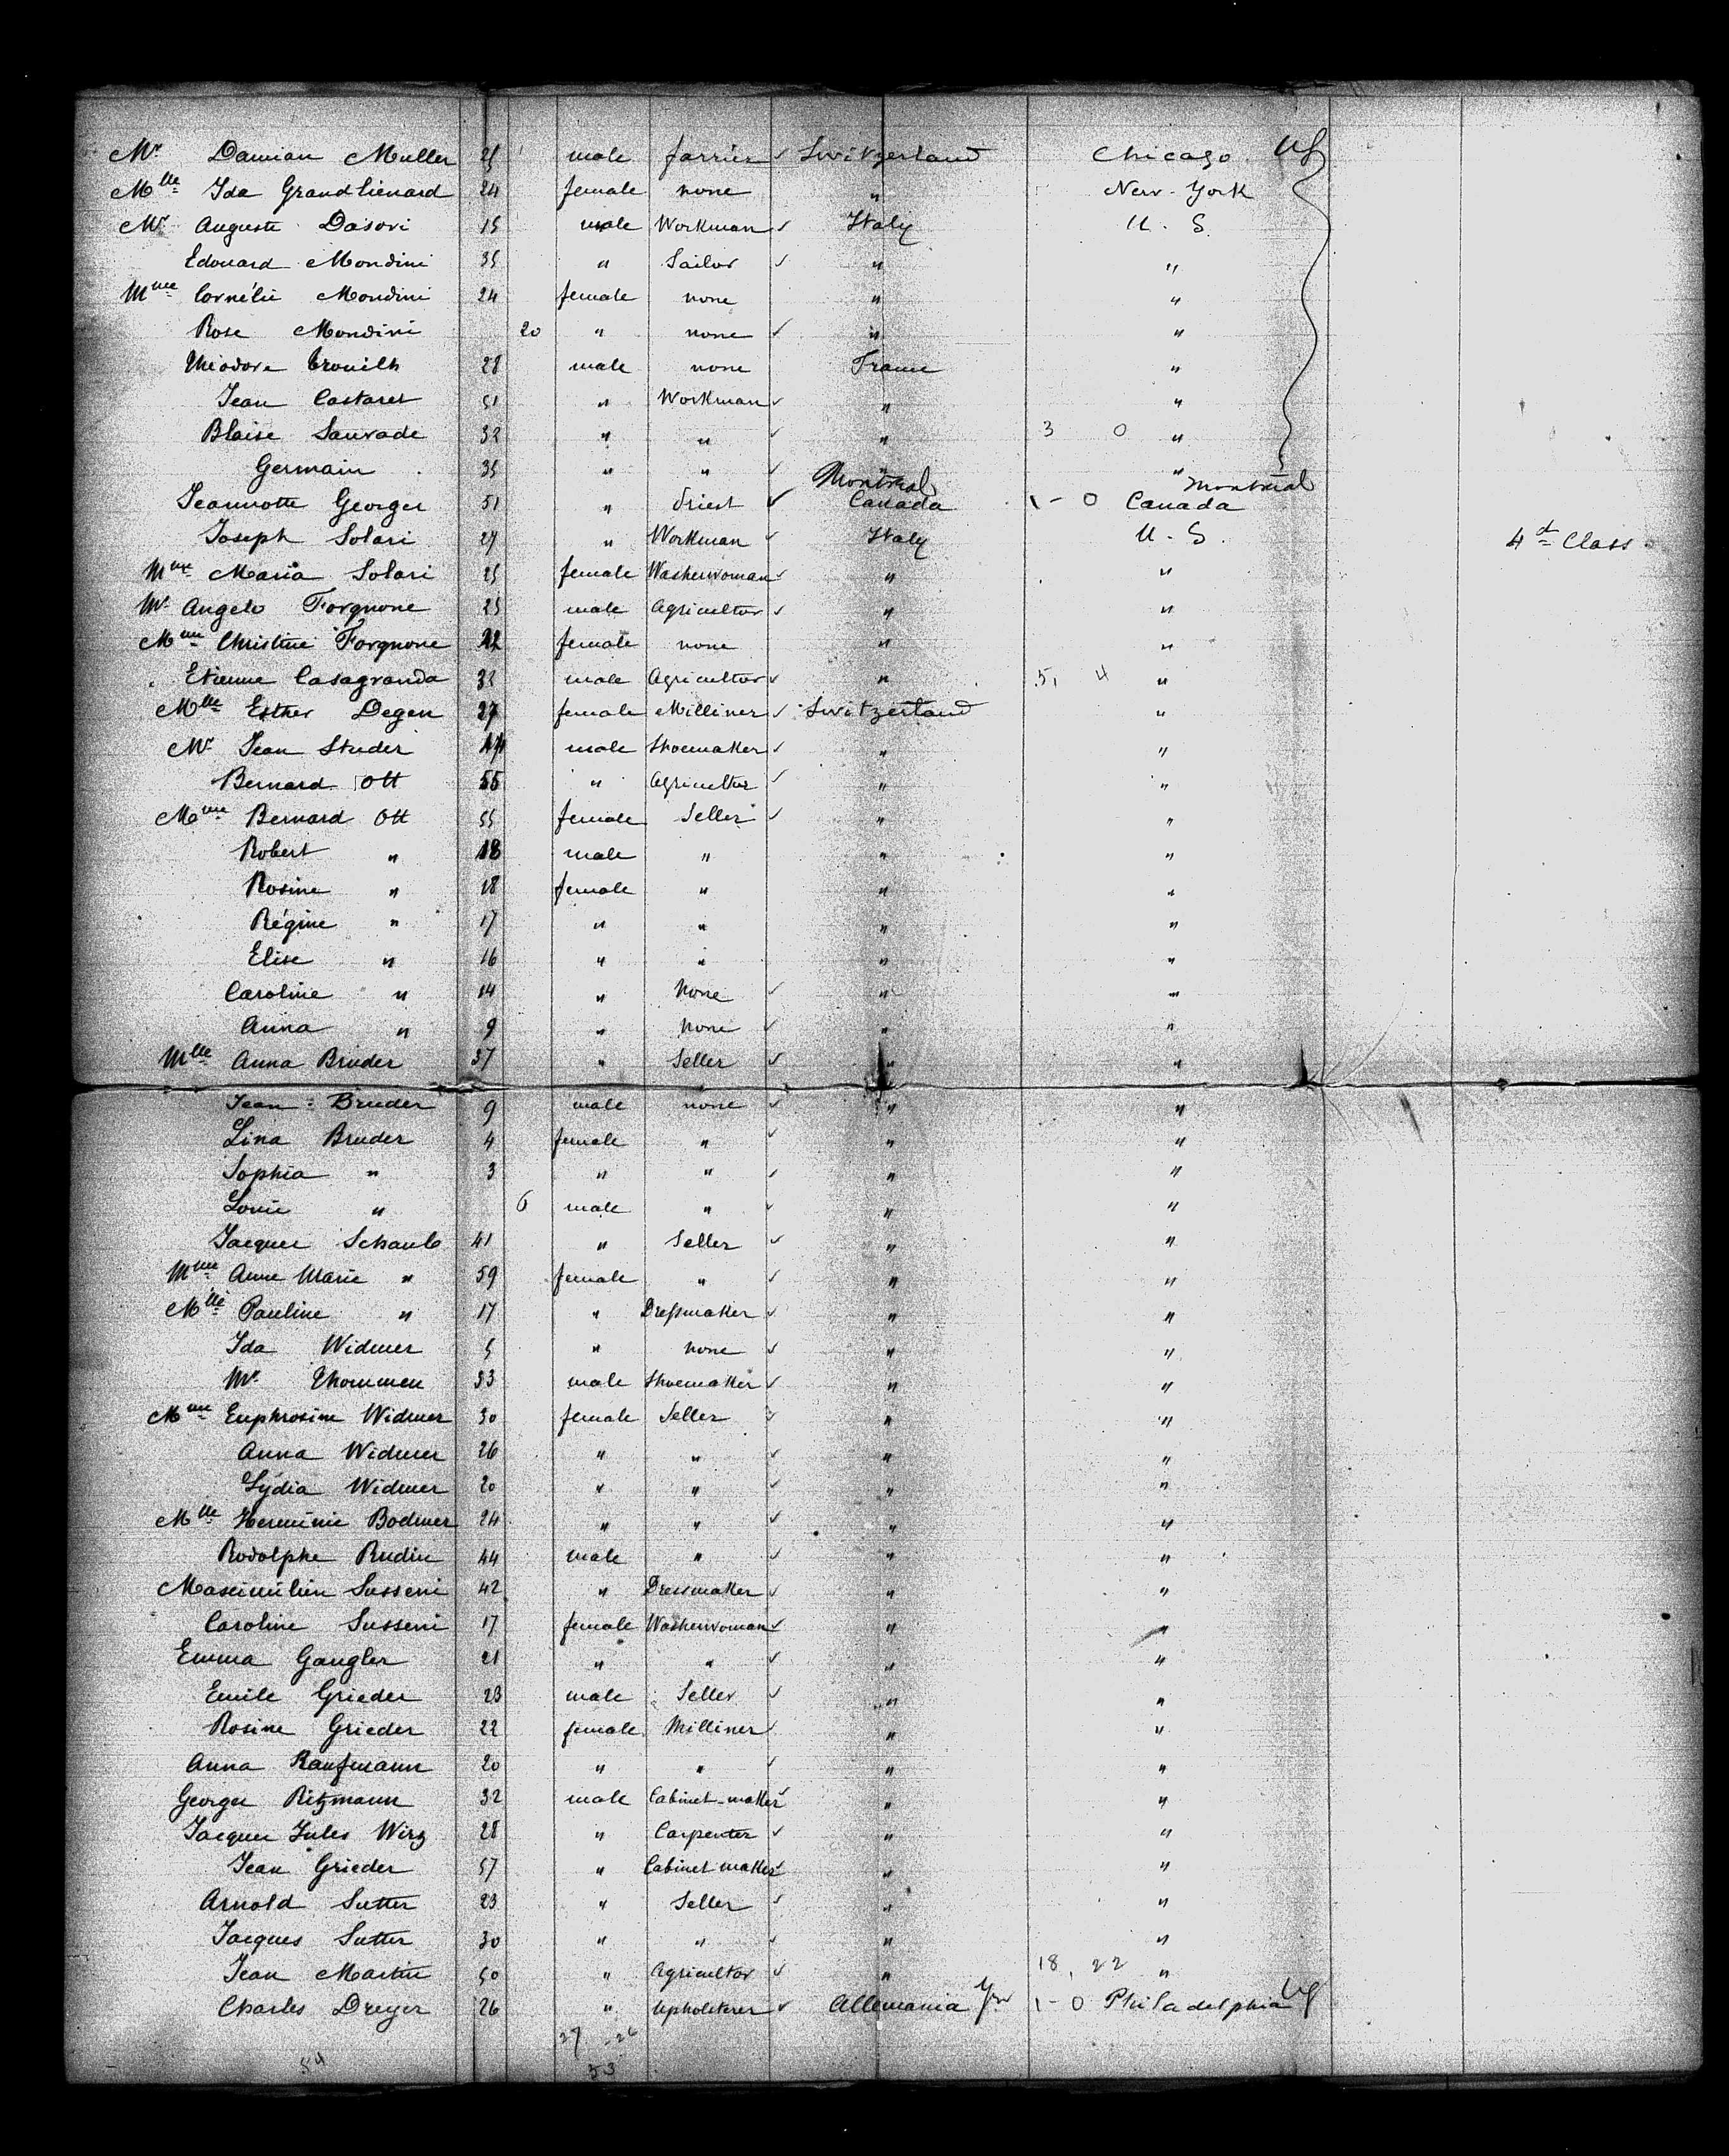 Mr Damian Muller 25 male farrier ✓ Switzerland Chicago US
Mlle Ida Grandlienard 24 female none " New-York
Mr Auguste Dasovi 15 male Workman ✓ Italy U. S.
Edouard Mondini 35 " Sailor ✓ " "
Mme Cornélie Mondini 24 female none " "
Rose Mondini 20 " none ✓ " "
Théodore Crouilh 28 male none France "
Jean Castarer 51 " Workman ✓ " "
Blaise Sauvade 32 " " ✓ " 3 0 "
Germain 35 " " ✓ " "
Montreal Montreal
Jeannotte Georges 51 " Priest ✓ Canada 1-0 Canada
Joseph Solari 27 " Workman ✓ Italy U. S. 4d Class
Mme Maria Solari 25 female Washerwoman ✓ " "
Mr Angelo Forgnone 25 male Agricultor ✓ " "
Mme Christine Forgnone 22 female none " "
Etienne Casagranda 32 male Agricultor ✓ " 5, 4 "
Mlle Esther Degen 27 female Milliner ✓ Switzerland "
Mr Jean Studer male Shoemaker ✓ " "
Bernard Ott 55 " Agricultor ✓ " "
Mme Bernard Ott 55 female Seller ✓ " "
Robert " 18 male " " "
Rosine " 18 female " " "
Régine " 17 " " " "
Elise " 16 " " " "
Caroline " 14 " None ✓ " "
Anna " 9 " None ✓ " "
Mlle Anna Bruder 37 " Seller ✓ " "
Jean Bruder 9 male none ✓ " "
Lina Bruder 4 female " ✓ " "
Sophia " 3 " " ✓ " "
Louis " 6 male " ✓ " "
Jacques Schaub 41 " Seller ✓ " "
Mme Anne Marie " 59 female " ✓ " "
Mlle Pauline " 17 " Dressmaker ✓ " "
Ida Widmer 5 " none ✓ " "
Mr Thommen 33 male Shoemaker ✓ " "
Mme Euphrosine Widmer 30 female Seller ✓ " "
Anna Widmer 26 " " ✓ " "
Lydia Widmer 20 " " ✓ " "
Mlle Herminie Bodmer 24 " " ✓ " "
Rodolphe Rudin 44 male " ✓ " "
Maximilien Susseni 42 " Dressmaker ✓ " "
Caroline Susseni 17 female Washerwoman ✓ " "
Emma Gangler 21 " " ✓ " "
Emile Grieder 23 male Seller ✓ " "
Rosine Grieder 22 female Milliner ✓ " "
Anna Kaufmann 20 " " ✓ " "
Georges Ritzmann 32 male Cabinet-maker ✓ " "
Jacques Jules Wirz 28 " Carpenter ✓ " "
Jean Grieder 57 " Cabinet maker ✓ " "
Arnold Sutter 23 " Seller ✓ " "
Jacques Sutter 30 " " ✓ " "
Jean Martin 50 " Agricultor ✓ " 18, 22 "
Charles Dreyer 26 " Upholsterer ✓ Allemania 1-0 Philadelphia US
27 - 26
54 53